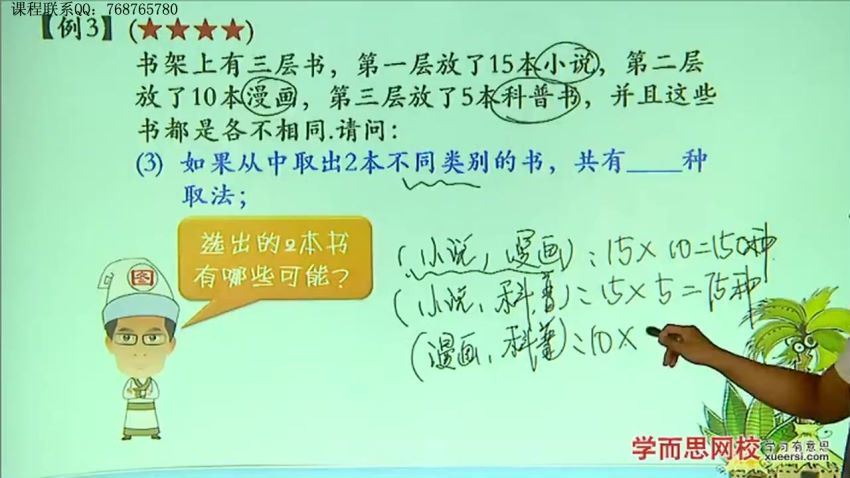 课程联系QQ：768765780
【例3】(★★★★)
书架上有三层书，第一层放了15本小说，第二层
放了10本漫画，第三层放了5本科普书，并且这些
书都是各不相同.请问：
(3) 如果从中取出2本不同类别的书，共有____种
取法；
选出的2本书
有哪些可能？
图
(小说，漫画)：15×10=150种
(小说，科普)：15×5=75种
(漫画，科普)：10×
学而思网校 学习有意思
xueersi.com